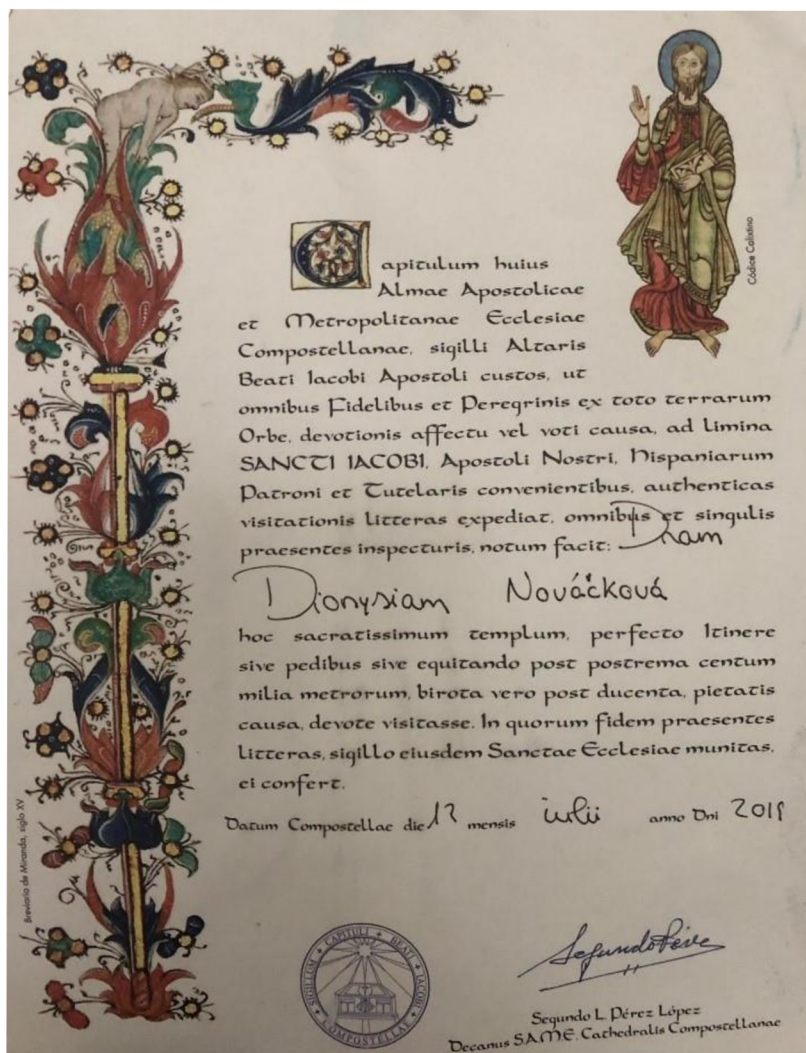 Capitulum huius
Almae Apostolicae
et Metropolitanae Ecclesiae
Compostellanae, sigilli Altaris
Beati Iacobi Apostoli custos, ut
omnibus Fidelibus et Peregrinis ex toto terrarum
Orbe, devotionis affectu vel voti causa, ad limina
SANCTI IACOBI, Apostoli Nostri, Hispaniarum
Patroni et Tutelaris convenientibus, authenticas
visitationis litteras expediat, omnibus et singulis
praesentes inspecturis, notum facit: Dnam
Dionysiam Nováčková
hoc sacratissimum templum, perfecto Itinere
sive pedibus sive equitando post postrema centum
milia metrorum, birota vero post ducenta, pietatis
causa, devote visitasse. In quorum fidem praesentes
litteras, sigillo eiusdem Sanctae Ecclesiae munitas,
ei confert.
Datum Compostellae die mensis iulii anno Dni
Códice Calixtino
Breviario de Miranda, siglo XV
SIGILLUM CAPITULI BEATI IACOBI
COMPOSTELLAE
Segundo L. Pérez López
Decanus S.A.M.E. Cathedralis Compostellanae